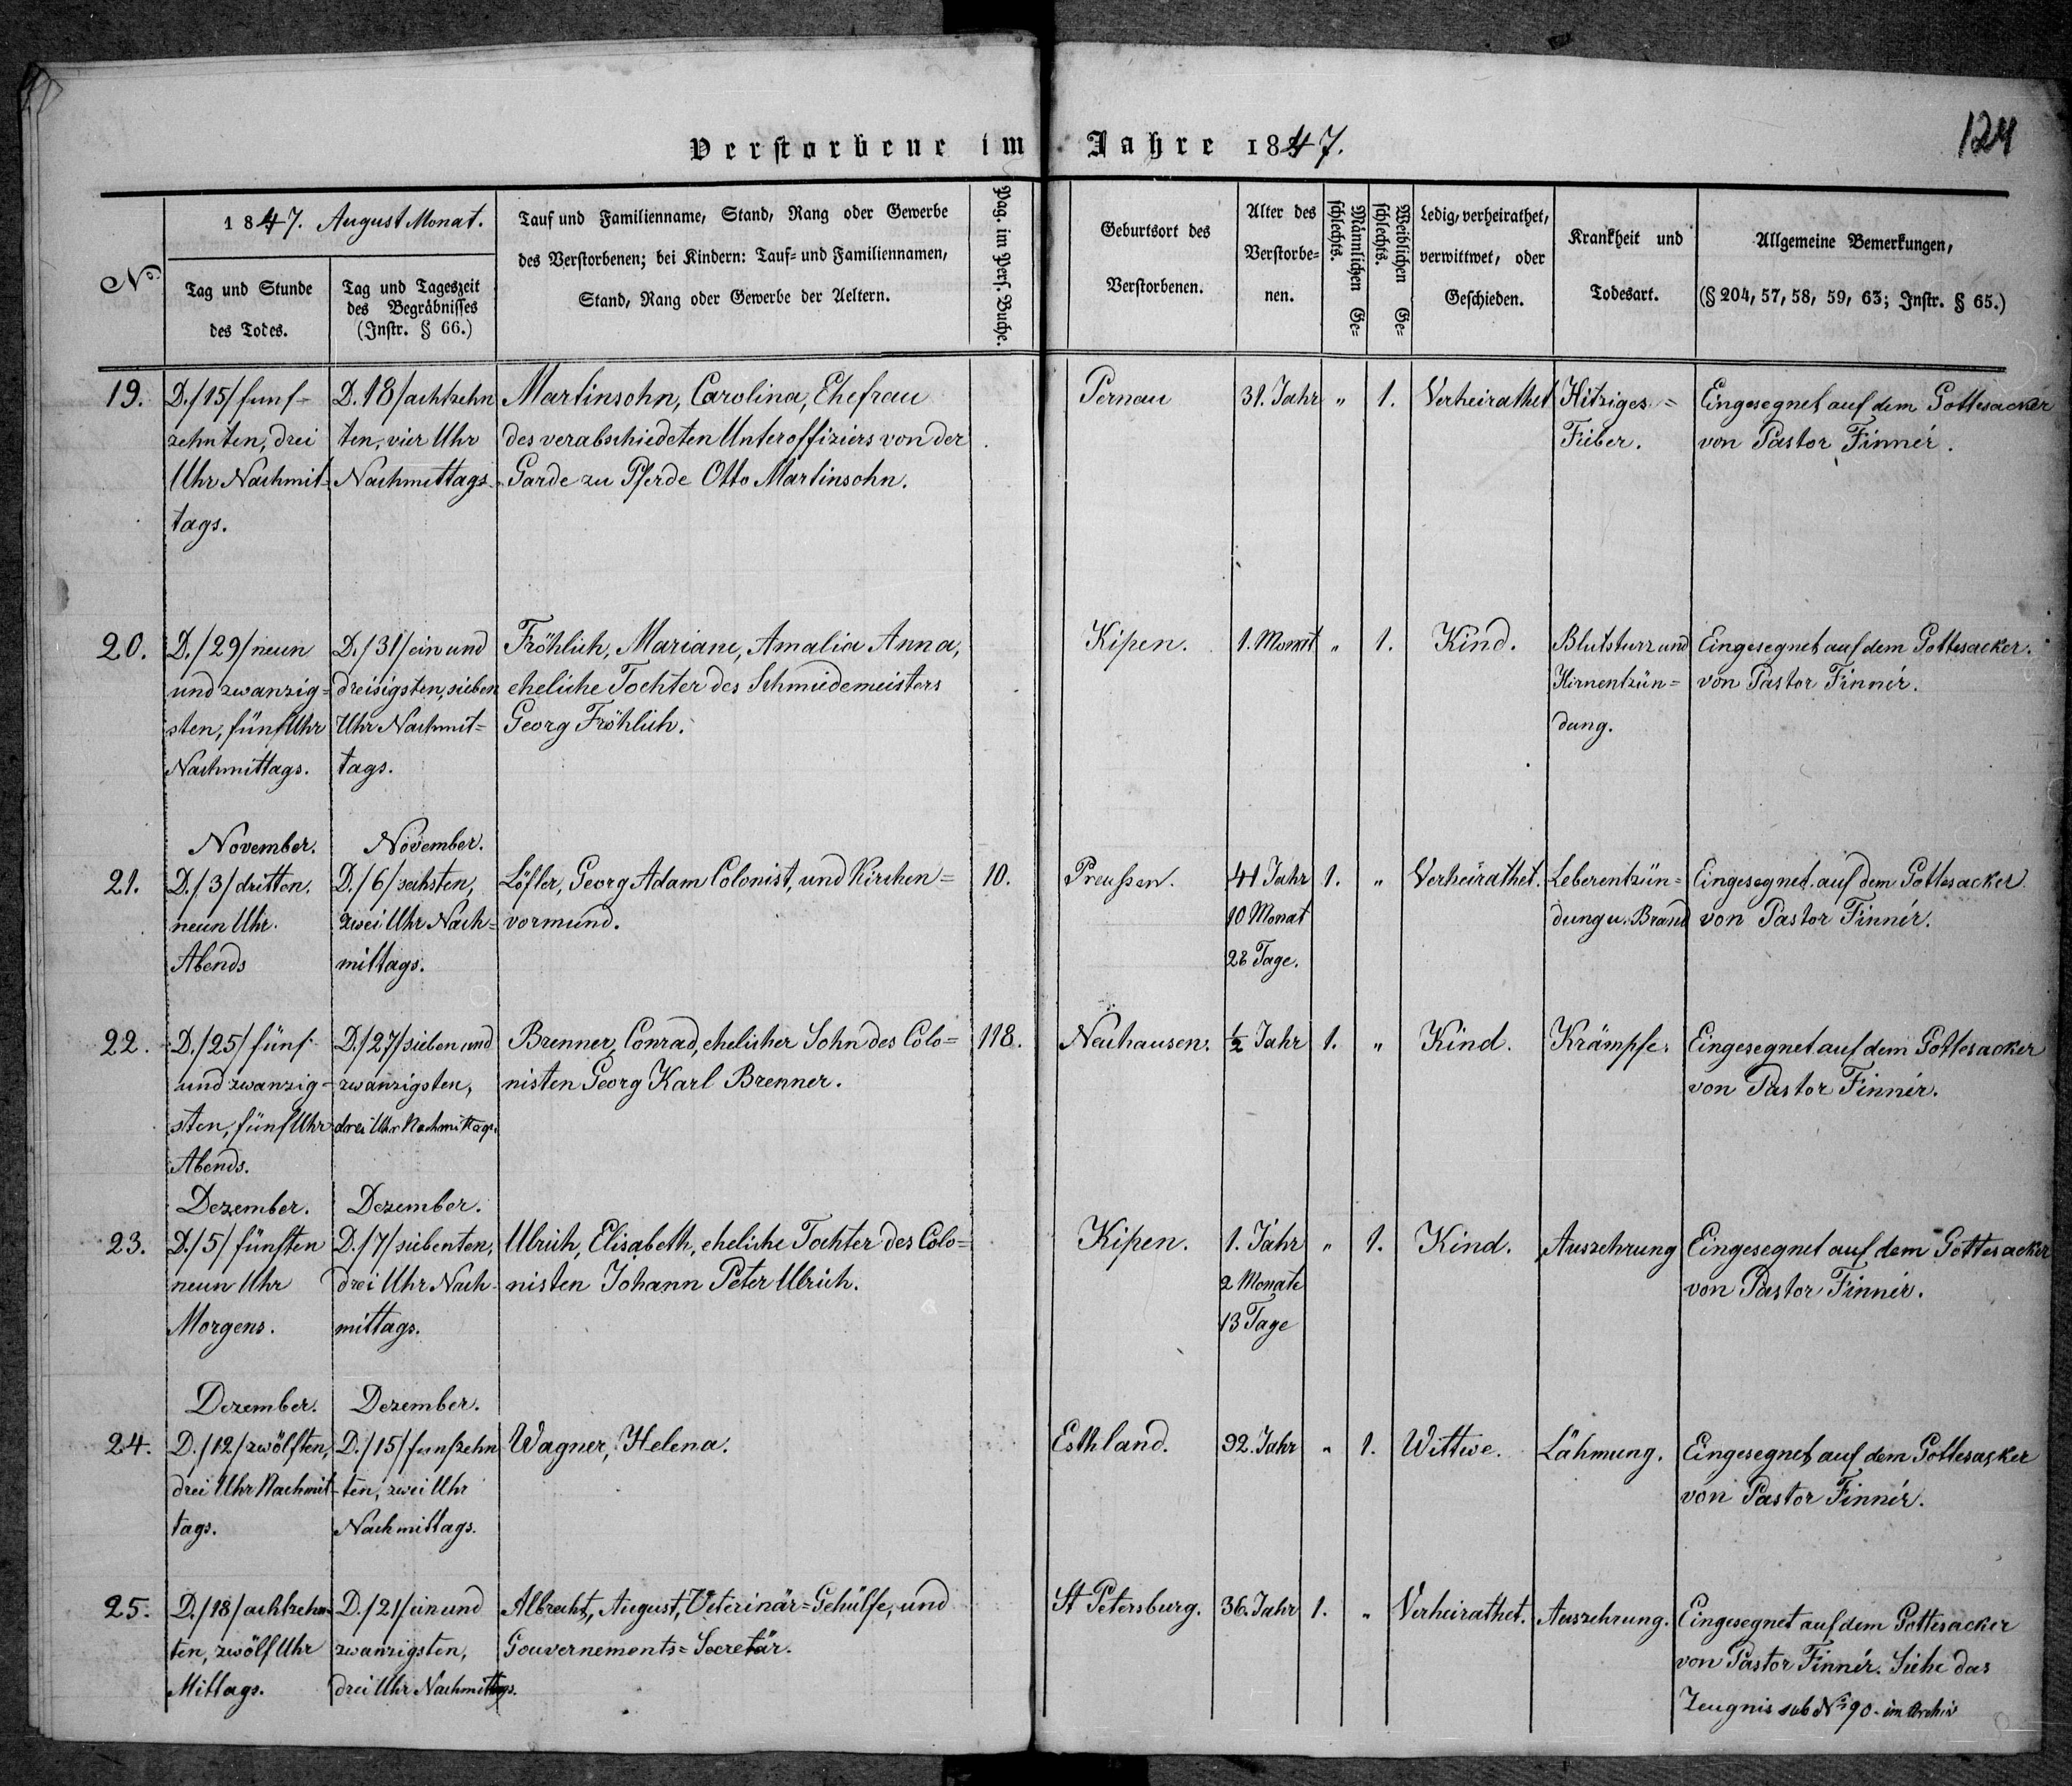 Verstorbene im Jahre 1847.
124
No.
1847. August Monat.
Tag und Stunde
des Todes.
Tag und Tageszeit
des Begräbnisses
(Instr. § 66.)
Tauf und Familienname, Stand, Rang oder Gewerbe
des Verstorbenen; bei Kindern: Tauf= und Familiennamen,
Stand, Rang oder Gewerbe der Aeltern.
Pag. im Pers. Buche.
Geburtsort des
Verstorbenen.
Alter des
Verstorbe=
nen.
Männlichen Ge=
schlechts.
Weiblichen Ge=
schlechts.
Ledig, verheirathet,
verwittwet, oder
Geschieden.
Krankheit und
Todesart.
Allgemeine Bemerkungen,
(§ 204, 57, 58, 59, 63; Instr. § 65.)
19.
D./15/ funf=
zehnten, drei
Uhr Nachmit=
tags.
D. 18/ achtzehn
ten, vier Uhr
Nachmittags.
Martinsohn, Carolina, Ehefrau
des verabschiedeten Unteroffiziers von der
Garde zu Pferde Otto Martinsohn.
Pernau
31. Jahr
"
1.
Verheirathet
Hitziges =
Fieber.
Eingesegnet auf dem Gottesacker
von Pastor Finnér.
20.
D./29/ neun
und zwanzig=
sten, fünf Uhr
Nachmittags.
D./31/ ein und
dreisigsten, sieben
Uhr Nachmit=
tags.
Fröhlich, Mariane, Amalia Anna,
eheliche Tochter des Schmiedemeisters
Georg Fröhlich.
Kipen.
1. Monat
"
1.
Kind.
Blutsturz und
Hirnentzün=
dung.
Eingesegnet auf dem Gottesacker.
von Pastor Finnér.
November.
November.
21.
D./3/ dritten.
neun Uhr.
Abends
D./6/ sechsten,
zwei Uhr Nach=
mittags.
Löfler, Georg Adam Colonist, und Kirchen=
vormund.
10.
Preußen.
41 Jahr
10 Monat
28 Tage.
1.
"
Verheirathet.
Leberentzün=
dung u. Brand
Eingesegnet auf dem Gottesacker
von Pastor Finnér.
22.
D./25/ fünf
und zwanzig=
sten, fünf Uhr
Abends.
D./27/ sieben und
zwanzigsten,
drei Uhr Nachmittags.
Brenner, Conrad, ehelicher Sohn des Colo=
nisten Georg Karl Brenner.
118.
Neuhausen.
½ Jahr
1.
"
Kind.
Krämpfe.
Eingesegnet auf dem Gottesacker
von Pastor Finnér.
Dezember.
Dezember.
23.
D./5/ fünften
neun Uhr
Morgens.
D./7/ siebenten,
drei Uhr Nach=
mittags.
Ulrich, Elisabeth, eheliche Tochter des Colo=
nisten Johann Peter Ulrich.
Kipen.
1. Jahr
2 Monate
13 Tage
"
1.
Kind.
Auszehrung
Eingesegnet auf dem Gottesacker
von Pastor Finnér.
Dezember.
Dezember.
24.
D./12/ zwölften,
drei Uhr Nachmit=
tags.
D./15/ funfzehn
ten, zwei Uhr
Nachmittags.
Wagner, Helena.
Esthland.
92. Jahr
"
1.
Wittwe.
Lähmung.
Eingesegnet auf dem Gottesacker
von Pastor Finnér.
25.
D./18/ achtzehn=
ten, zwölf Uhr
Mittags.
D./21/ ein und
zwanzigsten,
drei Uhr Nachmittags.
Albrecht, August, Veterinär=Gehülfe, und
Gouvernements=Secretär.
St Petersburg.
36. Jahr
1.
"
Verheirathet.
Auszehrung.
Eingesegnet auf dem Gottesacker
von Pastor Finnér. Siehe das
Zeugnis sub No 90. im Archiv